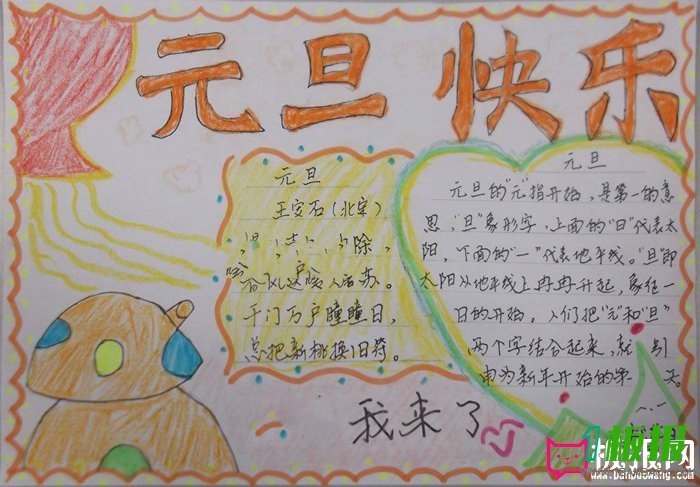 元旦快乐
元旦
王安石(北宋)
除,
春风送暖入屠苏。
千门万户瞳瞳日,
总把新桃换旧符。
元旦
元旦的“元”指开始,是第一的意
思,“旦”象形字,上面的“日”代表太
阳,下面的“一”代表地平线。“旦”即
太阳从地平线上冉冉升起,象征一
日的开始,人们把“元”和“旦”
两个字结合起来,就引
申为新年开始的第一天。
我来了
板报网
www.banbaowang.com